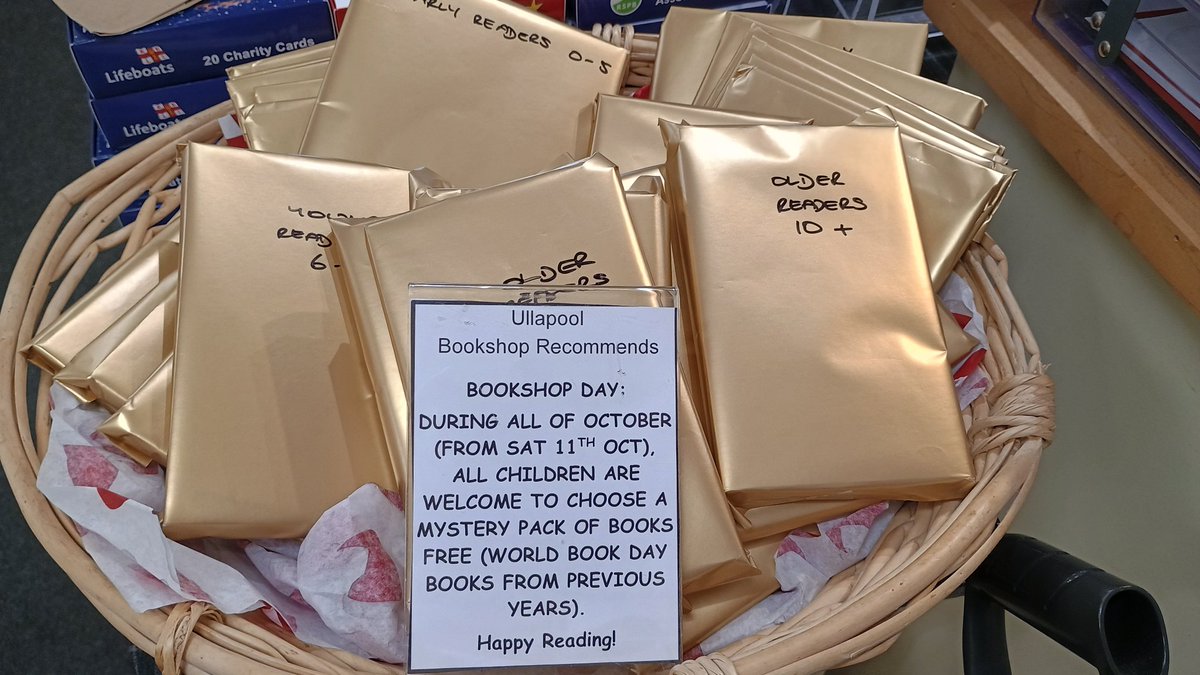 Lifeboats
20 Charity Cards
Lifeboats
RSPB
READERS 0-5
OLDER
READERS
10 +
6-
OLDER
Ullapool
Bookshop Recommends
BOOKSHOP DAY:
DURING ALL OF OCTOBER
(FROM SAT 11TH OCT),
ALL CHILDREN ARE
WELCOME TO CHOOSE A
MYSTERY PACK OF BOOKS
FREE (WORLD BOOK DAY
BOOKS FROM PREVIOUS
YEARS).
Happy Reading!